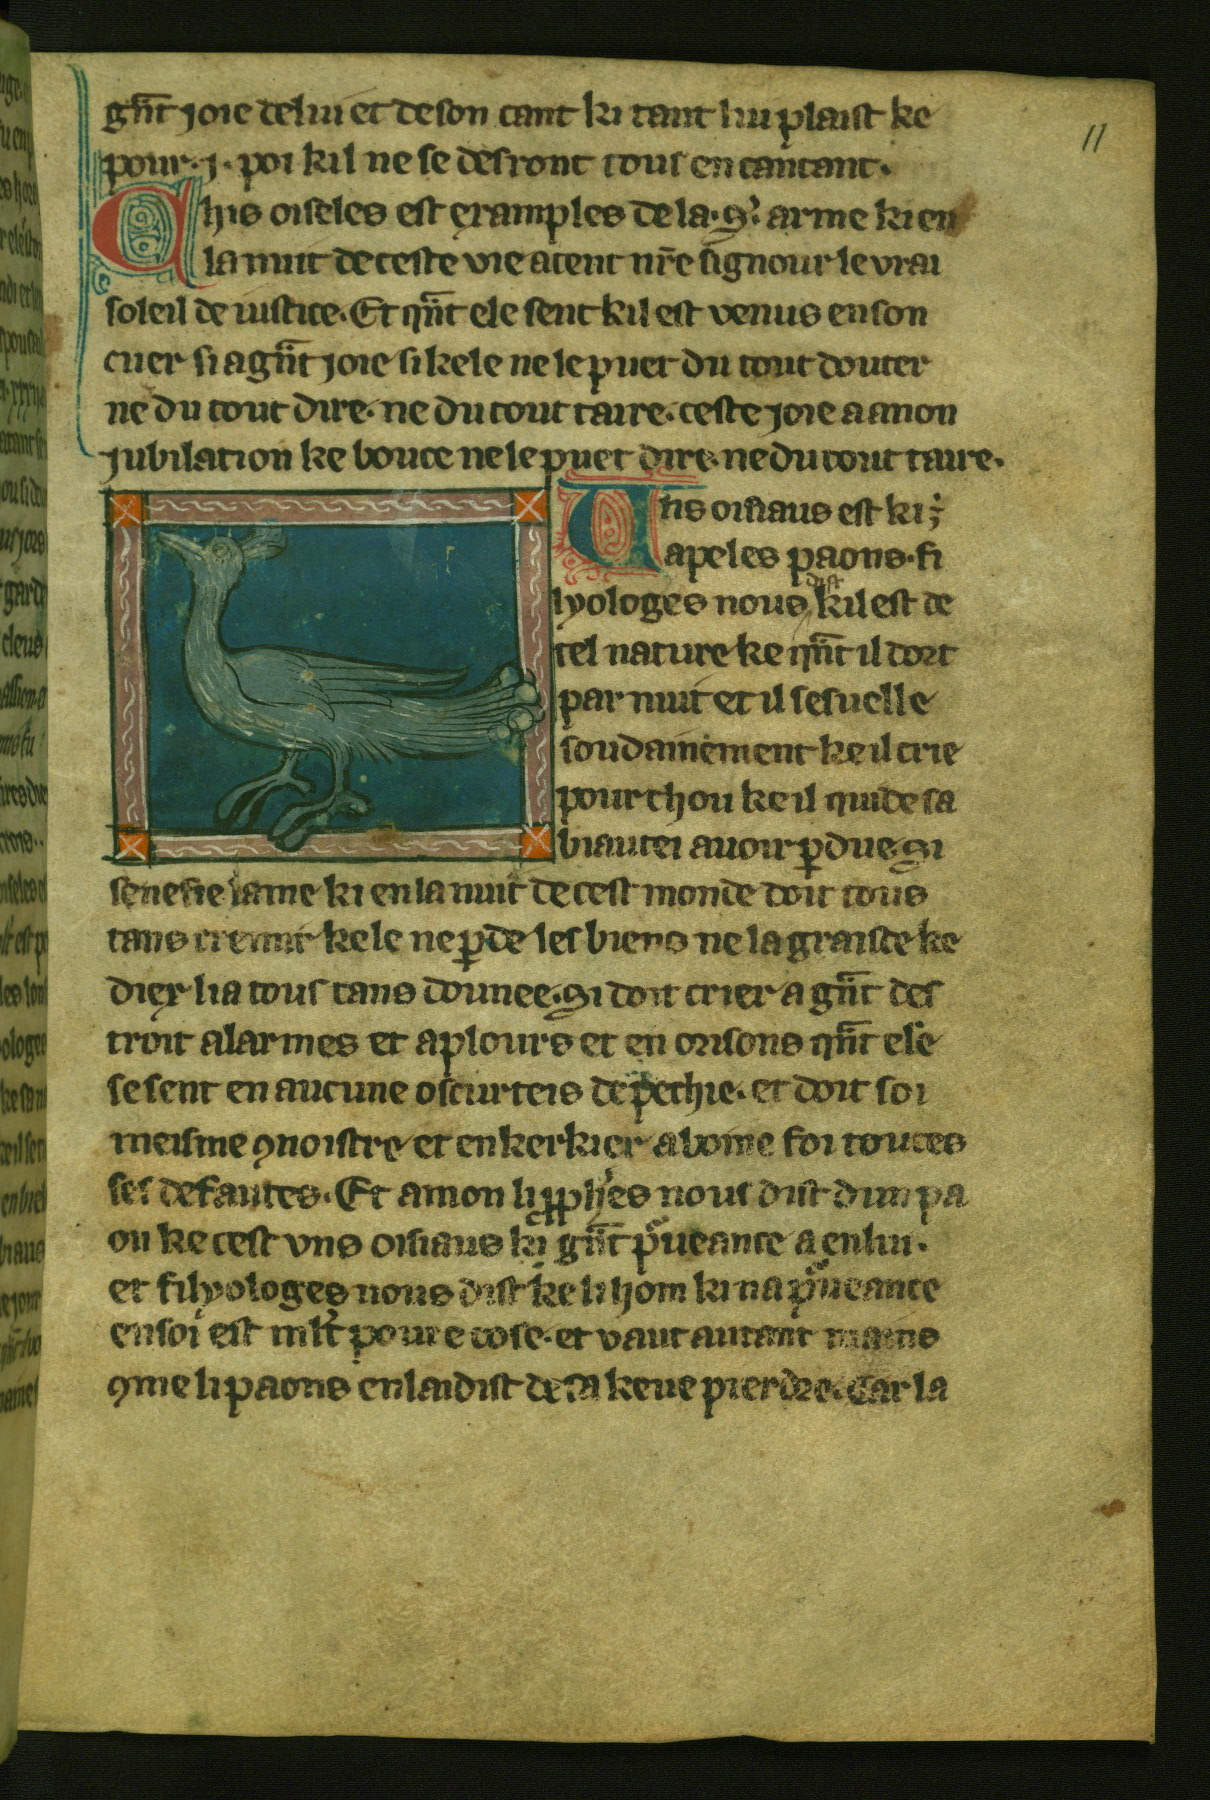 11
gñt joie de lui et de son cant ki tant lui plaist ke
pour .j. poi kil ne se desront tous en cantant.
Chis oiseles est examples de la .S'. arme ki en
la nuit de ceste vie atent nr̃e signour le vrai
soleil de iustice. Et qñt ele sent kil est venus en son
cuer si a gñt joie si kele ne le puet du tout douter
ne du tout dire. ne du tout taire. ceste joie a a non
jubilation ke bouce ne le puet dire. ne du tout taire.
Uns oisiaus est ki
apeles paons. fi
lyologes nous dist kil est de
tel nature ke qñt il dort
par nuit et il sesuelle
soudainement ke il crie
pour chou ke il quide sa
biautei auoir ꝑdue. Si
senefie lame ki en la nuit de cest monde doit tous
tans cremir kele ne ꝑde les biens ne la grasce ke
diex li a tous tans dounee. Si doit crier a gñt des
troit a larmes et a plours et en orisons qñt ele
se sent en aucune oscurteis de pechie. et doit soi
meisme ꝯnoistre et enkerkier a bone foi toutes
ses defautes. Et amon li ꝓphes nous dist dun pa
on ke cest vns oisiaus ki gñt pͦueance a en lui.
et filyologes nous dist ke li hom ki na pͦueance
en soi est ml't poure cose. et vaut autant mains
ꝯme li paons enlaidist de sa keue pierdre. Car la